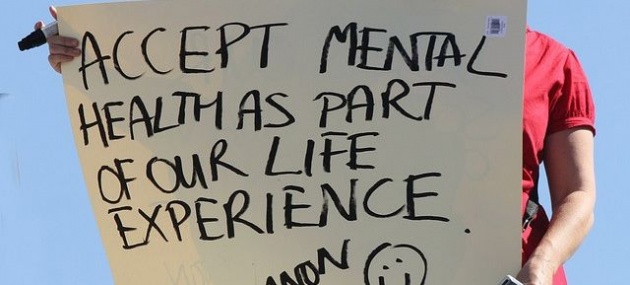 ACCEPT MENTAL
HEALTH AS PART
OF OUR LIFE
EXPERIENCE.